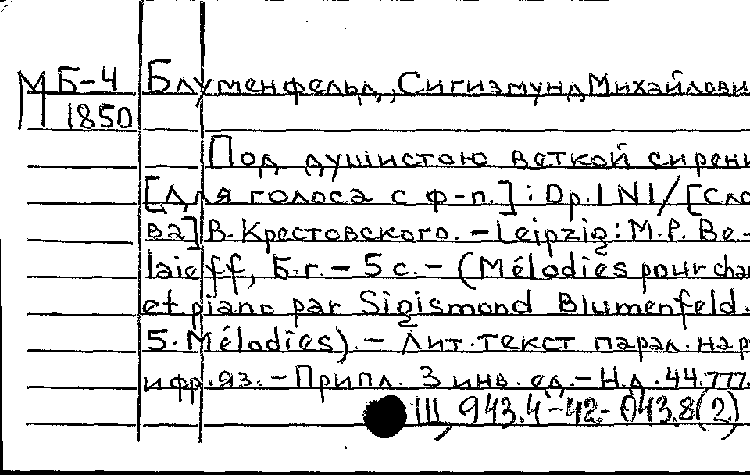 М Б-4 Блуменфельд, Сигизмунд Михайлови
1850
Под душистою веткой сирени
[Для голоса с ф-п.]: Op.1 N1/[Сло
ва] В. Крестовского. - Leipzig: M.P. Be-
laieff, Б.г. - 5 с. - (Mélodies pour chan
et piano par Sigismond Blumenfeld.
5 Mélodies). - Лит. текст парал. нар
и фр. яз. - Припл. 3 инв. ед. - Н.д. 44.777.
III, 943.4-42-043.8(2)